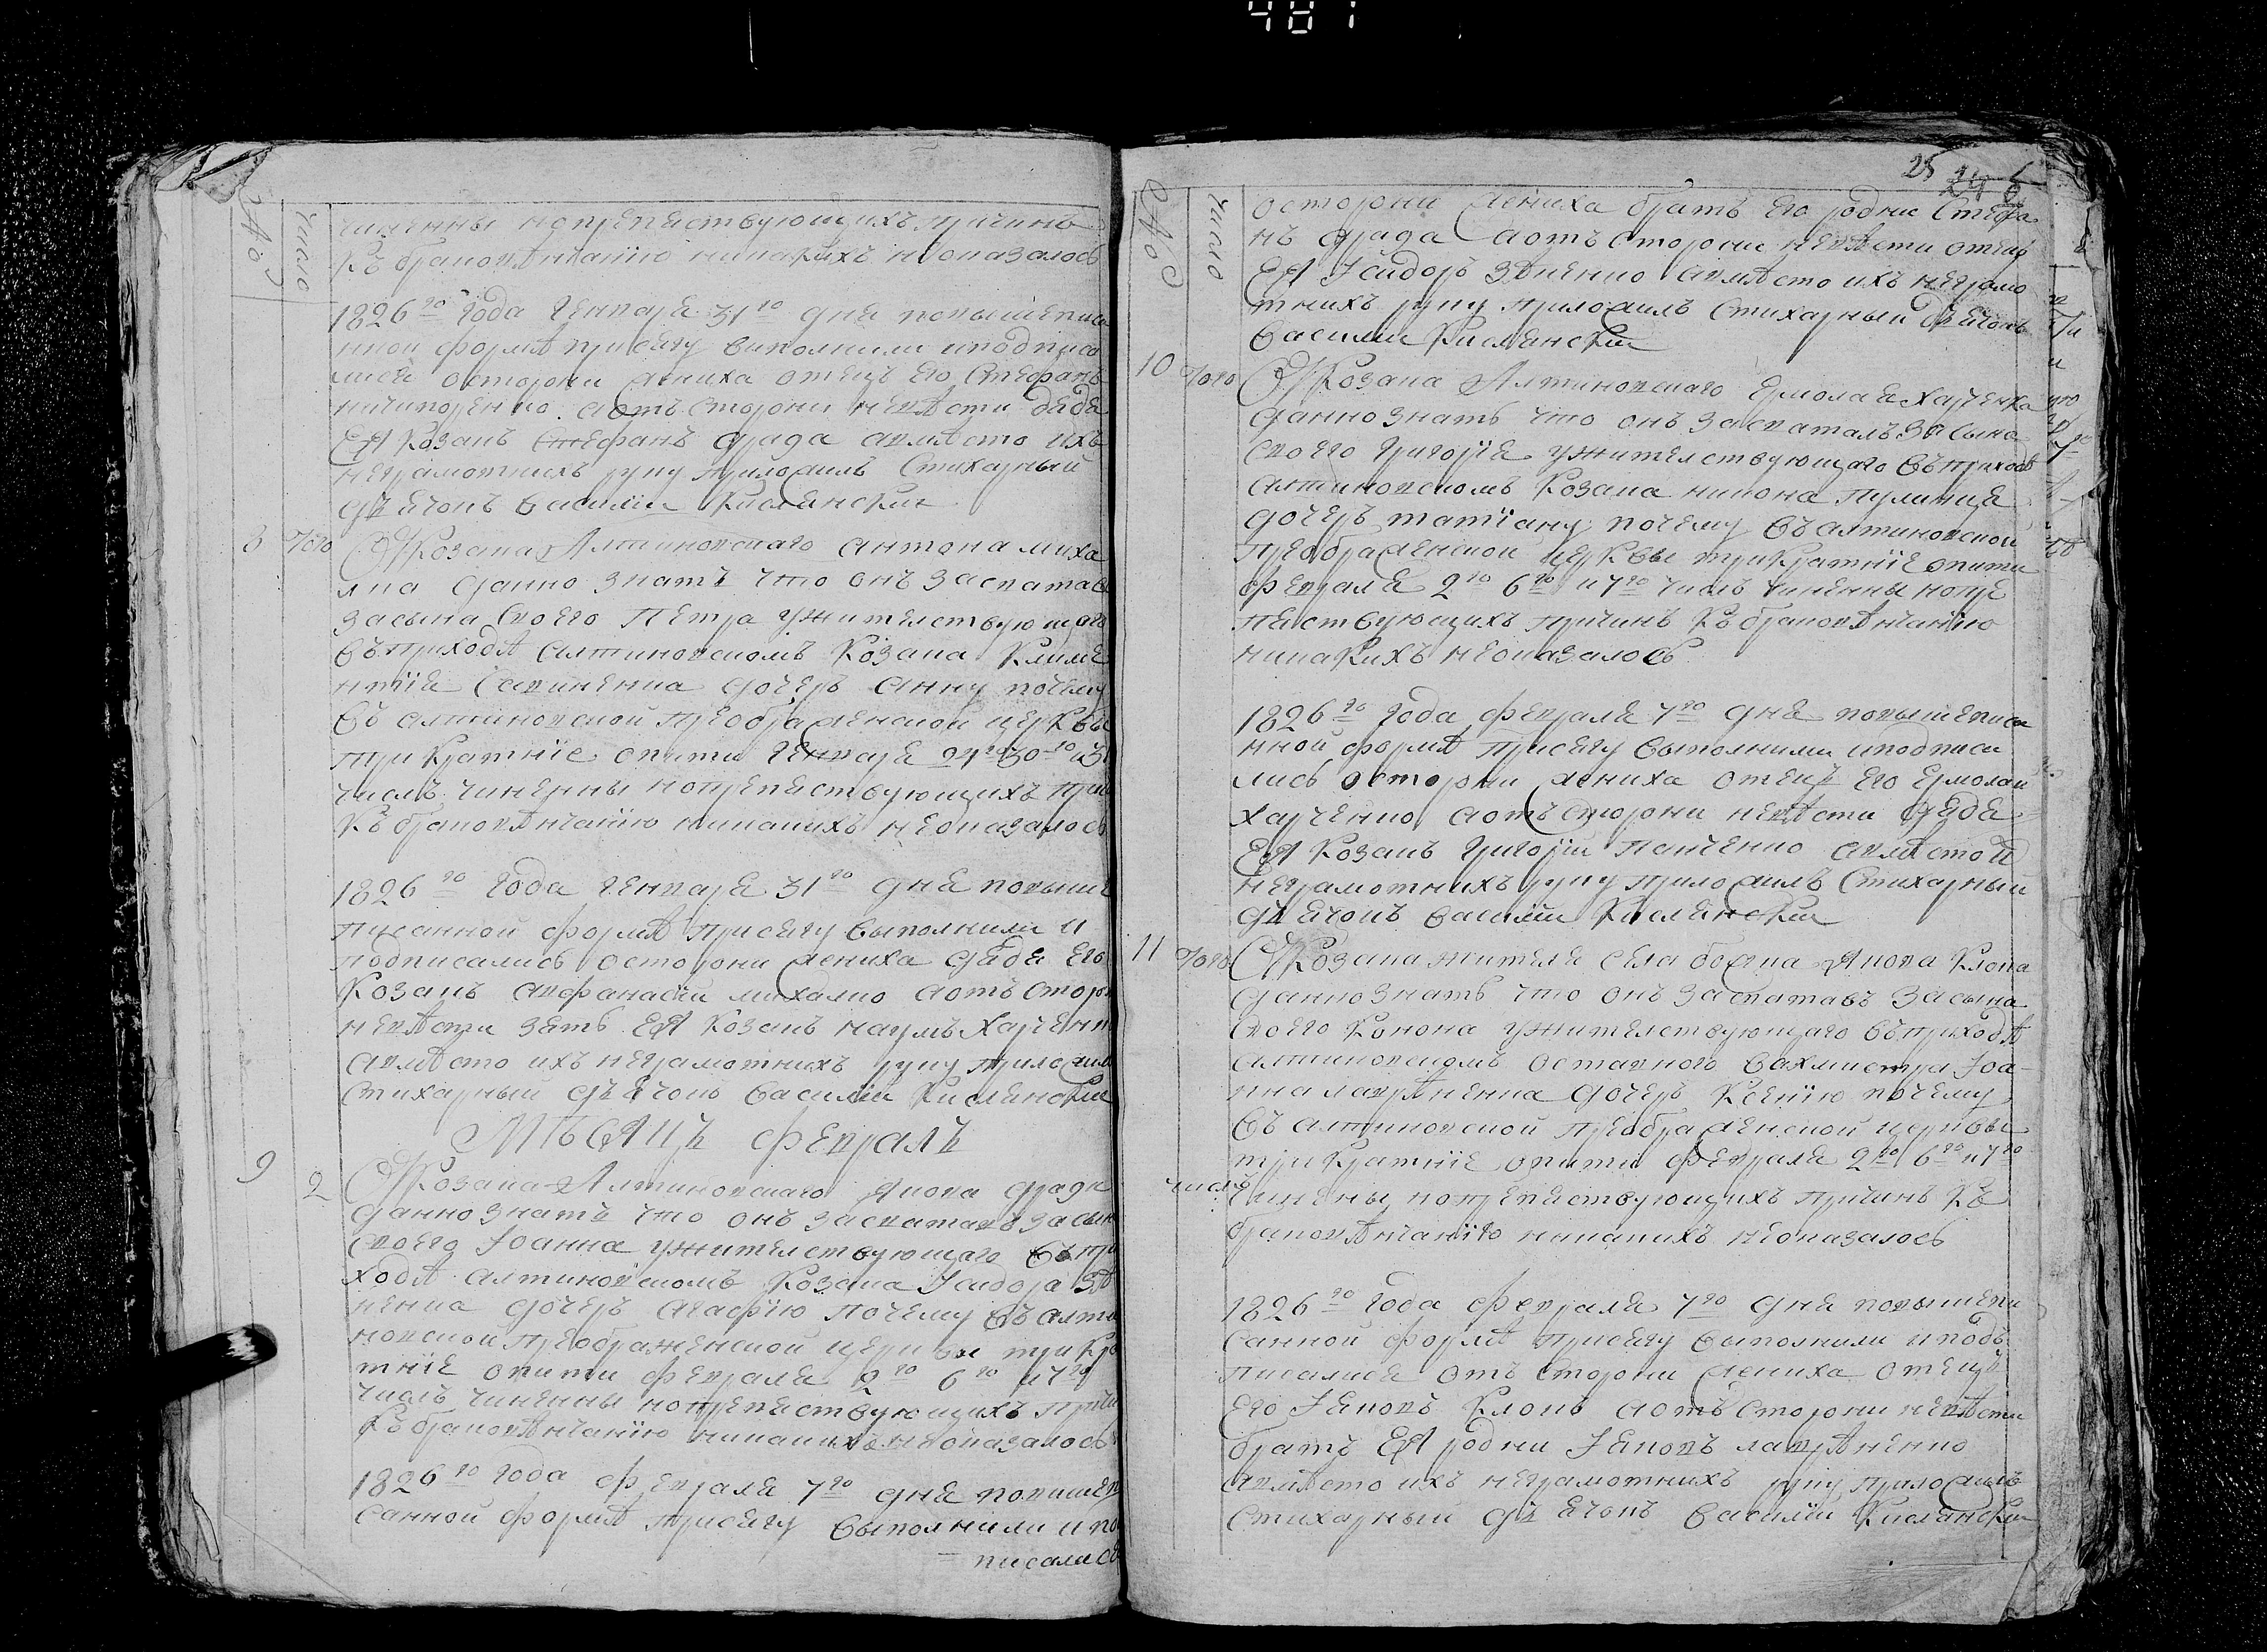 481
№
число
чиненны но препятствующихъ причинъ
Къ браковѣнчанїю никакихъ неоказалось
1826го года Генваря 31го дня повышеписа
нной формѣ присягу виполнили иподписа
лися осторони жениха отецъ Его Стефанъ
ничипоренко аотъ сторони невѣсти дядя
Ея Козакъ Стефанъ драга авмѣсто ихъ
неграмотнихъ руку приложилъ Стихарный
дьячокъ василїй Кислянский
8 того Ѿ Козака Алтиновскаго антона миха
лка данно знать что онъ засватавъ
засына своего Петра ужителствующаго
въприходѣ алтиновскомъ Козака Климе
нтїя Савиненка дочерь анну почему
въ алтиновской преображенской церкви
трикратнїе опити Генваря 24го 30го и31
числъ чиненны нопрепятствующихъ при
Къ браковѣнчанїю никакихъ неоказалось
1826го года Генваря 31го дня повыше
писанной формѣ присягу выполнили и
подписались осторони жениха дядя его
Козакъ афанасїй михалко аотъ сторо
невѣсти зять Ея Козакъ наумъ харченк
авмѣсто ихъ неграмотнихъ руку приложил
стихарный дьячокъ василїй Кислянский
Мѣсяцъ февраль
9 2 Ѿ Козака Алтиновскаго якова драги
данно знать что онъ засватавъ засын
своего Iоанна ужителствующаго въпри
ходѣ алтиновскомъ Козака Iсидора Зѣ
ненка дочерь агафїю почему въ алти
новской преображенской церкви трикра
тнїе опити февраля 2го 6го и7го
числъ чиненны нопрепятствующихъ причи
Къ браковѣнчанїю никакихъ неоказалось
1826го года февраля 7го дня повишепи
санной формѣ присягу выполнили и по
писались
25 24
№
число
осторони жениха братъ Его родни Стефа
нъ драга аотъ сторони невѣсти отецъ
Ея Iсидоръ Зѣненко авмѣсто ихъ неграмо
тнихъ руку приложилъ Стихарный дьячокъ
василїй Кислянский
10 того Ѿ Козака Алтиновскаго Ермолая харченка
данно знать что онъ засваталъ засына
своего григорїя ужителствующаго въприходѣ
алтиновскомъ Козака никона пулинця
дочерь татїану почему въалтиновской
преображенской церкви трикратнїе опити
февраля 2го 6го и7го числъ чиненны нопре
пятствующихъ причинъ Къ браковѣнчанїю
никакихъ неоказалось
1826го года февраля 7го дня повышеписа
нной формѣ присягу выполнили иподписа
лись осторони жениха отецъ Его Ермолай
харченко аотъ сторони невѣсти дядя
Ея Козакъ григорїй Панченко авмѣсто и
неграмотнихъ руку приложилъ Стихарный
дьячокъ василїй Кислянский
11 того Ѿ Козака жителя села Якова Клопа
данно знать что онъ засватавъ засына
своего Конона ужителствующаго въприходѣ
алтиновскомъ оставного вахмистра Iоа-
нна лаврѣненка дочерь Ксенїю почему
въ алтиновской преображенской церкви
трикратнїе опити февраля 2го 6го и7го
числъ чиненны нопрепятствующихъ причинъ Къ
браковѣнчанїю никакихъ неоказалось
1826го года февраля 7го дня повышепи
санной формѣ присягу выполнили иподъ
писалися отъ сторони жениха отецъ
Его Iаковъ Клопъ аотъ сторони невѣсти
братъ Ея родни Iаковъ лаврѣненко
авмѣсто ихъ неграмотнихъ руку приложилъ
стихарный дьячокъ василїй Кислянский